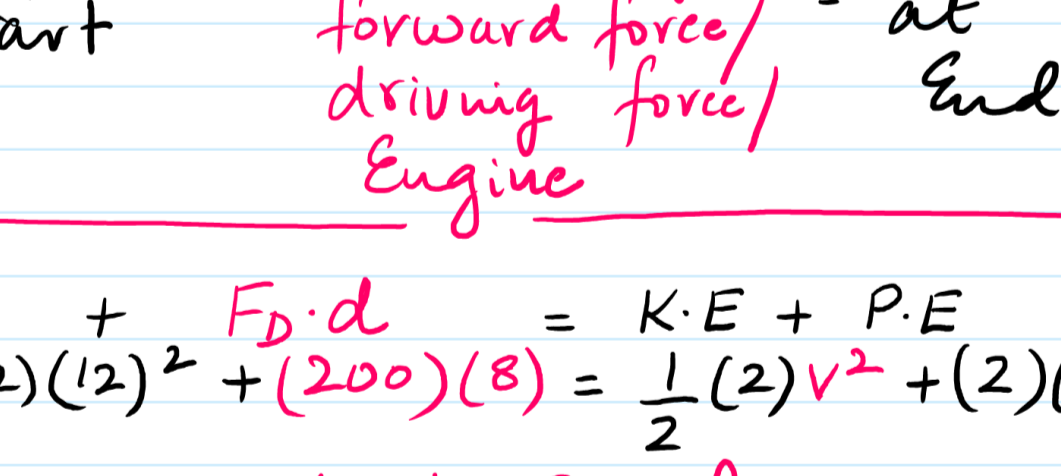 art forward force/ - at
driving force/ End
Engine
+ F_D·d = K·E + P·E
2)(12)² + (200)(8) = 1/2 (2) v² + (2)(